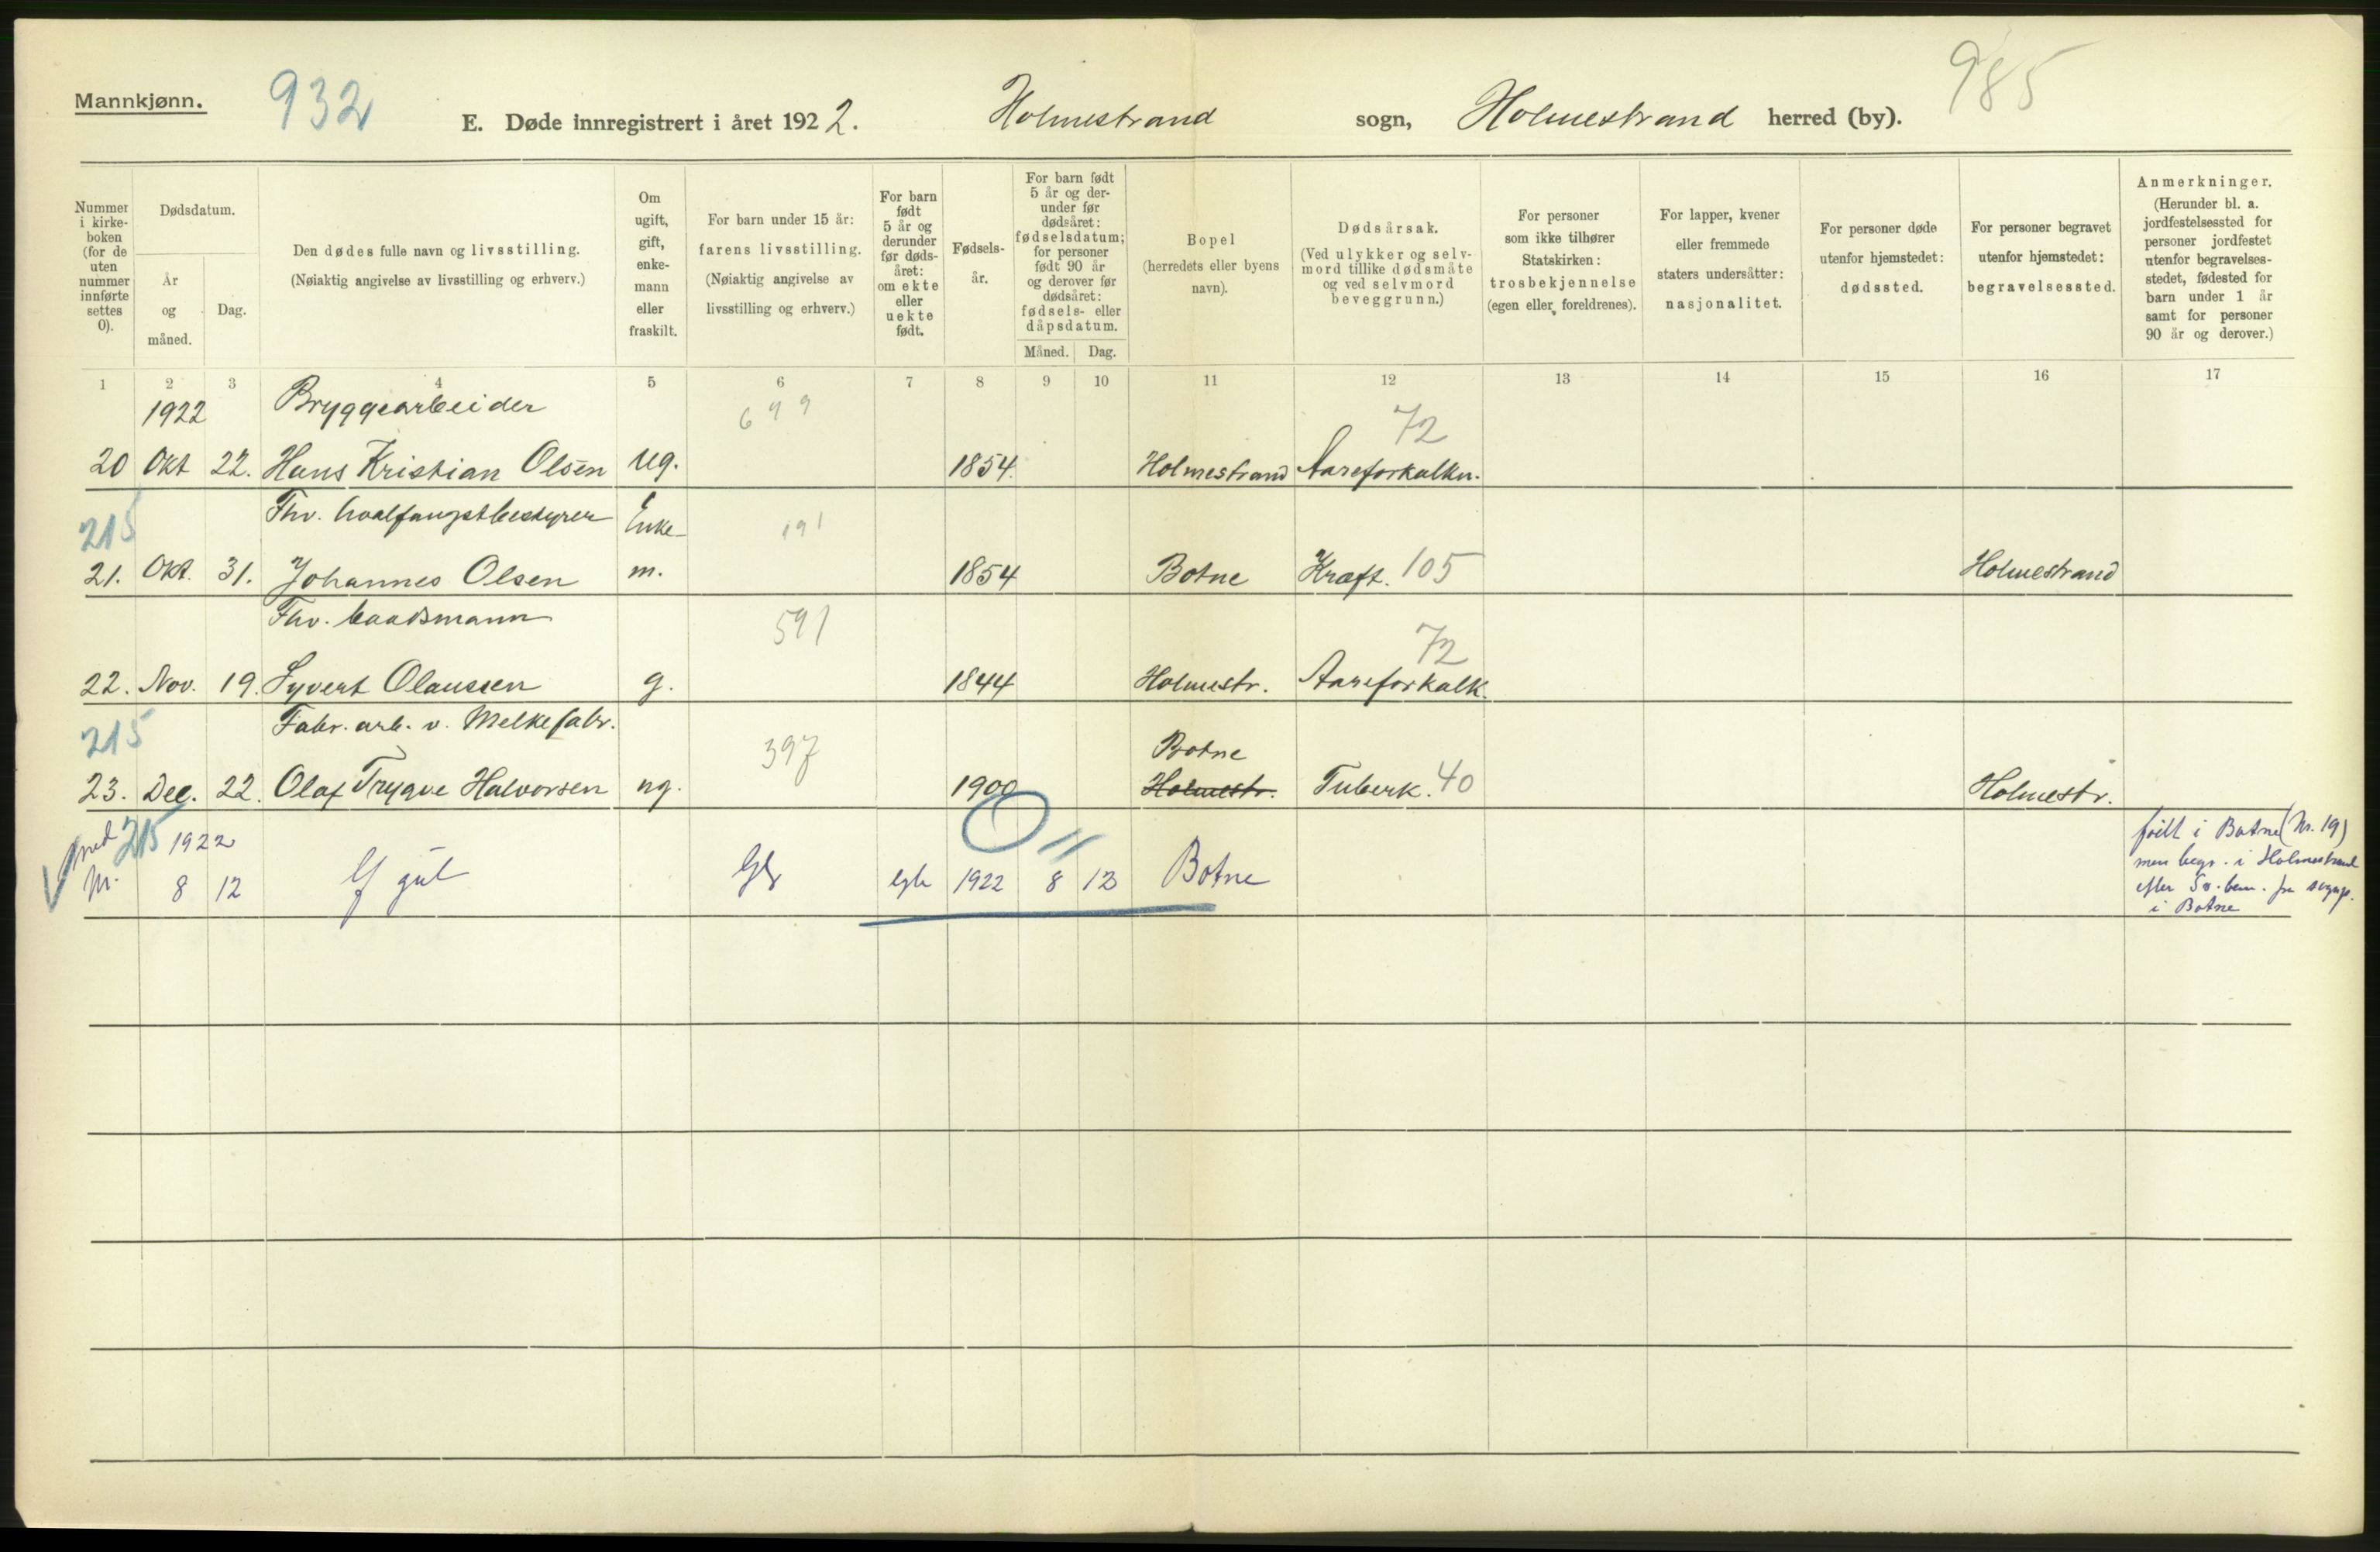 Mannkjønn.
932
E. Døde innregistrert i året 1922. Holmestrand sogn, Holmestrand herred (by).
985
Nummer i kirkeboken (for de uten nummer innførte settes 0).
Dødsdatum.
År og måned.
Dag.
Den dødes fulle navn og livsstilling.
(Nøiaktig angivelse av livsstilling og erhverv.)
Om ugift, gift, enkemann eller fraskilt.
For barn under 15 år:
farens livsstilling.
(Nøiaktig angivelse av livsstilling og erhverv.)
For barn født 5 år og derunder før dødsåret: om ekte eller uekte født.
Fødselsår.
For barn født 5 år og derunder før dødsåret: fødselsdatum; for personer født 90 år og derover før dødsåret: fødsels- eller dåpsdatum.
Måned. Dag.
Bopel
(herredets eller byens navn).
Dødsårsak.
(Ved ulykker og selvmord tillike dødsmåte og ved selvmord beveggrunn.)
For personer som ikke tilhører Statskirken: trosbekjennelse (egen eller foreldrenes).
For lapper, kvener eller fremmede staters undersåtter: nasjonalitet.
For personer døde utenfor hjemstedet: dødssted.
For personer begravet utenfor hjemstedet: begravelsessted.
Anmerkninger.
(Herunder bl. a. jordfestelsessted for personer jordfestet utenfor begravelsesstedet, fødested for barn under 1 år samt for personer 90 år og derover.)
1 2 3 4 5 6 7 8 9 10 11 12 13 14 15 16 17
1922 Bryggearbeider 699 72
20 Okt 22. Hans Kristian Olsen ug. 1854. Holmestrand Aareforkalkn.
215 Fhv. hvalfangstbestyrer Enke- 191
21. Okt. 31. Johannes Olsen m. 1854 Botne Kræft. 105 Holmestrand
Fhv. baadsmann 591 72
22. Nov. 19. Syvert Olaussen g. 1844 Holmestr. Aareforkalk.
215 Fabr. arb. v. Melkefabr. 397 Botne
23. Dec. 22. Olaf Trygve Halvorsen ug. 1900 Holmestr. Tuberk. 40 Holmestr.
215 1922 født i Botne (Nr. 19)
8 12 gut 1922 8 12 Botne men begr. i Holmestrand
i Botne